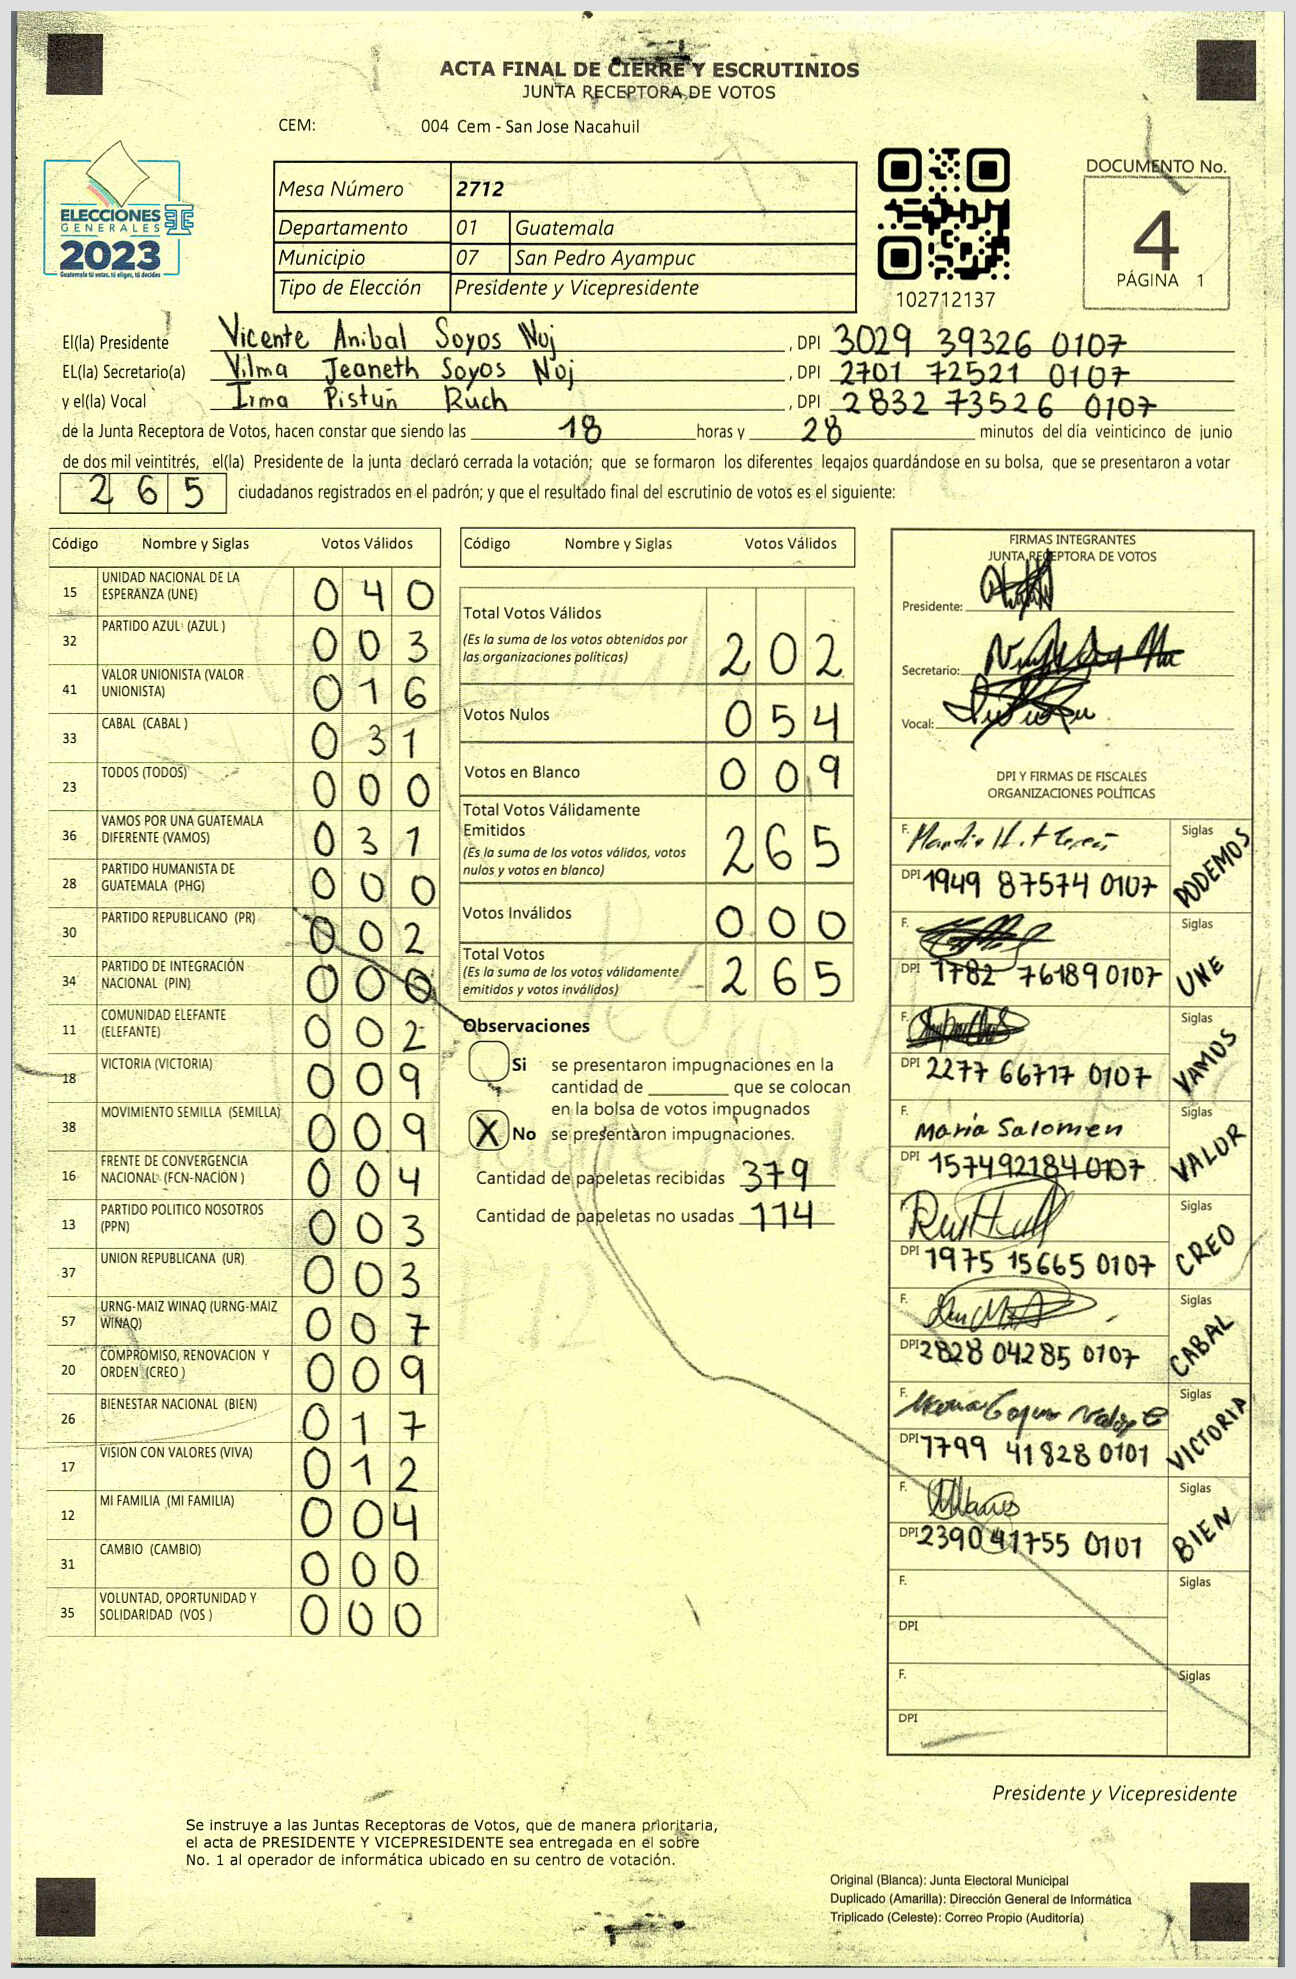 ACTA FINAL DE CIERRE Y ESCRUTINIOS
JUNTA RECEPTORA DE VOTOS
CEM: 004 Cem - San Jose Nacahuil
ELECCIONES
GENERALES
2023
Guatemala tú votas, tú eliges, tú decides
Mesa Número 2712
Departamento 01 Guatemala
Municipio 07 San Pedro Ayampuc
Tipo de Elección Presidente y Vicepresidente
102712137
DOCUMENTO No.
4
PÁGINA 1
El(la) Presidente Vicente Anibal Soyos Noj, DPI 3029 39326 0107
EL(la) Secretario(a) Vilma Jeaneth Soyos Noj, DPI 2701 72521 0107
y el(la) Vocal Irma Pistun Ruch, DPI 2832 73526 0107
de la Junta Receptora de Votos, hacen constar que siendo las 18 horas y 28 minutos del día veinticinco de junio
de dos mil veintitrés, el(la) Presidente de la junta declaró cerrada la votación; que se formaron los diferentes legajos guardándose en su bolsa, que se presentaron a votar
265 ciudadanos registrados en el padrón; y que el resultado final del escrutinio de votos es el siguiente:
Código Nombre y Siglas Votos Válidos
15 UNIDAD NACIONAL DE LA ESPERANZA (UNE) 040
32 PARTIDO AZUL (AZUL ) 003
41 VALOR UNIONISTA (VALOR UNIONISTA) 016
33 CABAL (CABAL ) 031
23 TODOS (TODOS) 000
36 VAMOS POR UNA GUATEMALA DIFERENTE (VAMOS) 031
28 PARTIDO HUMANISTA DE GUATEMALA (PHG) 000
30 PARTIDO REPUBLICANO (PR) 002
34 PARTIDO DE INTEGRACIÓN NACIONAL (PIN) 000
11 COMUNIDAD ELEFANTE (ELEFANTE) 002
18 VICTORIA (VICTORIA) 009
38 MOVIMIENTO SEMILLA (SEMILLA) 009
16 FRENTE DE CONVERGENCIA NACIONAL (FCN-NACION ) 004
13 PARTIDO POLITICO NOSOTROS (PPN) 003
37 UNION REPUBLICANA (UR) 003
57 URNG-MAIZ WINAQ (URNG-MAIZ WINAQ) 007
20 COMPROMISO, RENOVACION Y ORDEN (CREO ) 009
26 BIENESTAR NACIONAL (BIEN) 017
17 VISION CON VALORES (VIVA) 012
12 MI FAMILIA (MI FAMILIA) 004
31 CAMBIO (CAMBIO) 000
35 VOLUNTAD, OPORTUNIDAD Y SOLIDARIDAD (VOS ) 000
Código Nombre y Siglas Votos Válidos
Total Votos Válidos
(Es la suma de los votos obtenidos por
las organizaciones políticas) 202
Votos Nulos 054
Votos en Blanco 009
Total Votos Válidamente
Emitidos
(Es la suma de los votos válidos, votos
nulos y votos en blanco) 265
Votos Inválidos 000
Total Votos
(Es la suma de los votos válidamente
emitidos y votos inválidos) 265
Observaciones
Si se presentaron impugnaciones en la
cantidad de ________ que se colocan
en la bolsa de votos impugnados
X No se presentaron impugnaciones.
Cantidad de papeletas recibidas 379
Cantidad de papeletas no usadas 114
FIRMAS INTEGRANTES
JUNTA RECEPTORA DE VOTOS
Presidente:
Secretario:
Vocal:
DPI Y FIRMAS DE FISCALES
ORGANIZACIONES POLÍTICAS
F. Siglas PODEMOS
DPI 1949 87574 0107
F. Siglas UNE
DPI 1782 76189 0107
F. Siglas VAMOS
DPI 2277 66717 0107
F. Maria Salomen Siglas VALOR
DPI 157492184 0107
F. Siglas CREO
DPI 1975 15665 0107
F. Siglas CABAL
DPI 2828 04285 0107
F. Siglas VICTORIA
DPI 1799 41828 0101
F. Siglas BIEN
DPI 2390 41755 0101
F. Siglas
DPI
F. Siglas
DPI
Presidente y Vicepresidente
Se instruye a las Juntas Receptoras de Votos, que de manera prioritaria,
el acta de PRESIDENTE Y VICEPRESIDENTE sea entregada en el sobre
No. 1 al operador de informática ubicado en su centro de votación.
Original (Blanca): Junta Electoral Municipal
Duplicado (Amarilla): Dirección General de Informática
Triplicado (Celeste): Correo Propio (Auditoría)